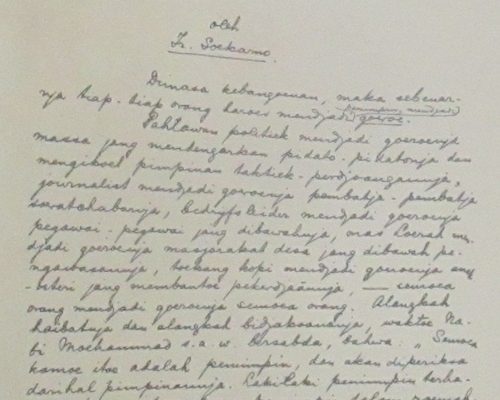 oleh
Ir. Soekarno.
Dimasa kebangoenan, maka sebenar-
nja tiap-tiap orang haroes mendjadi pemimpin, mendjadi goeroe.
Pahlawan politiek mendjadi goeroenja
massa jang mendengarkan pidato-pidatonja dan
mengikoet pimpinan taktiek-perdjoangannja,
journalist mendjadi goeroenja pembatja-pembatja
soeratchabarnja, bedrijfsleider mendjadi goeroenja
pegawai-pegawai jang dibawahnja, mas Loerah men-
djadi goeroenja masjarakat desa jang dibawah pe-
ngawasannja, toekang kopi mendjadi goeroenja
-isteri jang membantoe pekerdjaännja, — semoea
orang mendjadi goeroenja semoea orang. Alangkah
haibatnja dan alangkah bidjaksananja, waktoe Na-
bi Moehammad s.a.w. bersabda, bahwa: „Semoea
kamoe itoe adalah pemimpin, dan akan diperiksa
darihal pimpinannja. Lakilaki pemimpin terha-